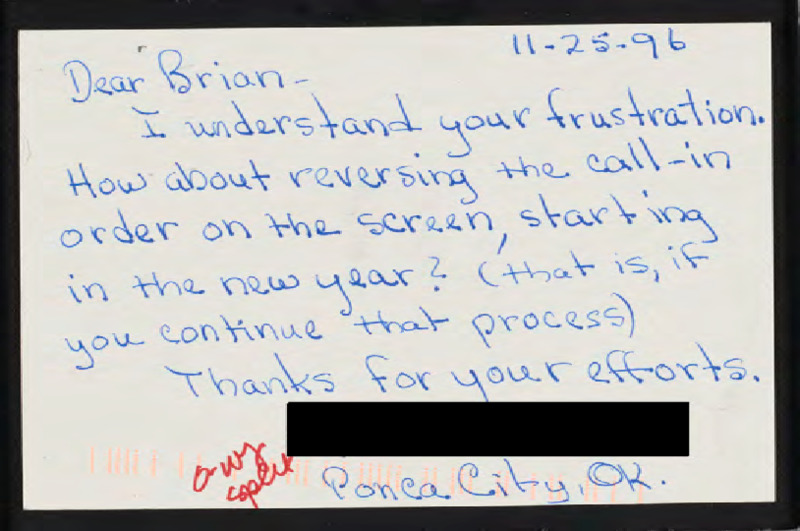 11-25-96
Dear Brian-
I understand your frustration.
How about reversing the call-in
order on the screen, starting
in the new year? (that is, if
you continue that process)
Thanks for your efforts.
Ponca City, OK.